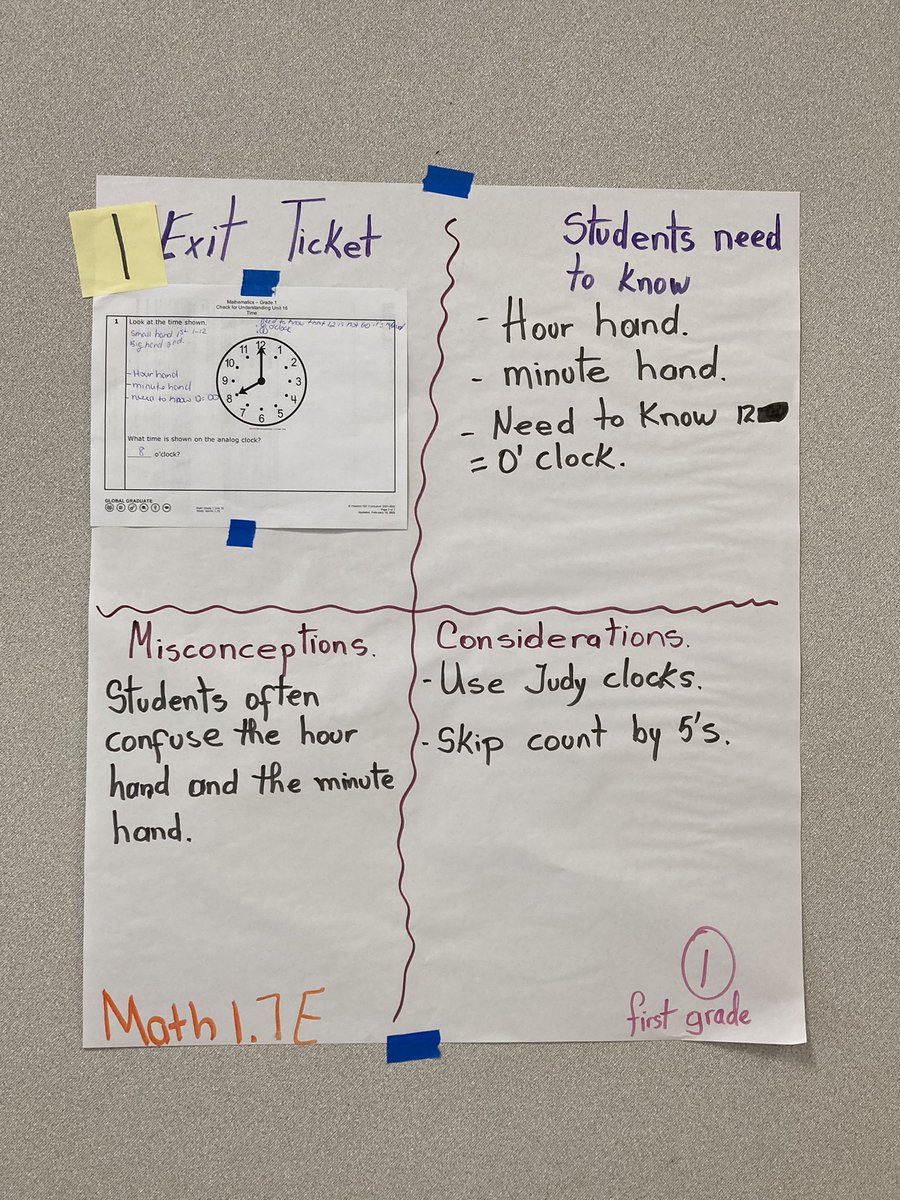 1
Exit Ticket
Mathematics – Grade 1
Check for Understanding Unit 16
Time
1
Look at the time shown.
need to know that 12 is not
o'clock
Small hand 1st 1-12
Big hand 2nd.
- Hour hand
- minute hand
- need to know 0:00
12
1
2
3
4
5
6
7
8
9
10
11
What time is shown on the analog clock?
8 o'clock?
GLOBAL GRADUATE
Students need
to know
- Hour hand.
- minute hand.
- Need to Know 12
= O'clock.
Misconceptions.
Students often
confuse the hour
hand and the minute
hand.
Considerations.
- Use Judy clocks.
- Skip count by 5's.
Math 1.7E
1
first grade